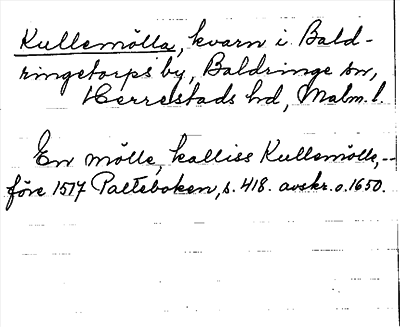 Kullemölla, kvarn i Bald-
ringetorps by, Baldringe sn,
Herrestads hd, Malm. l.
En mölle, kalliss Kullemölle, --
före 1517 Palteboken, s. 418. avskr. o. 1650.